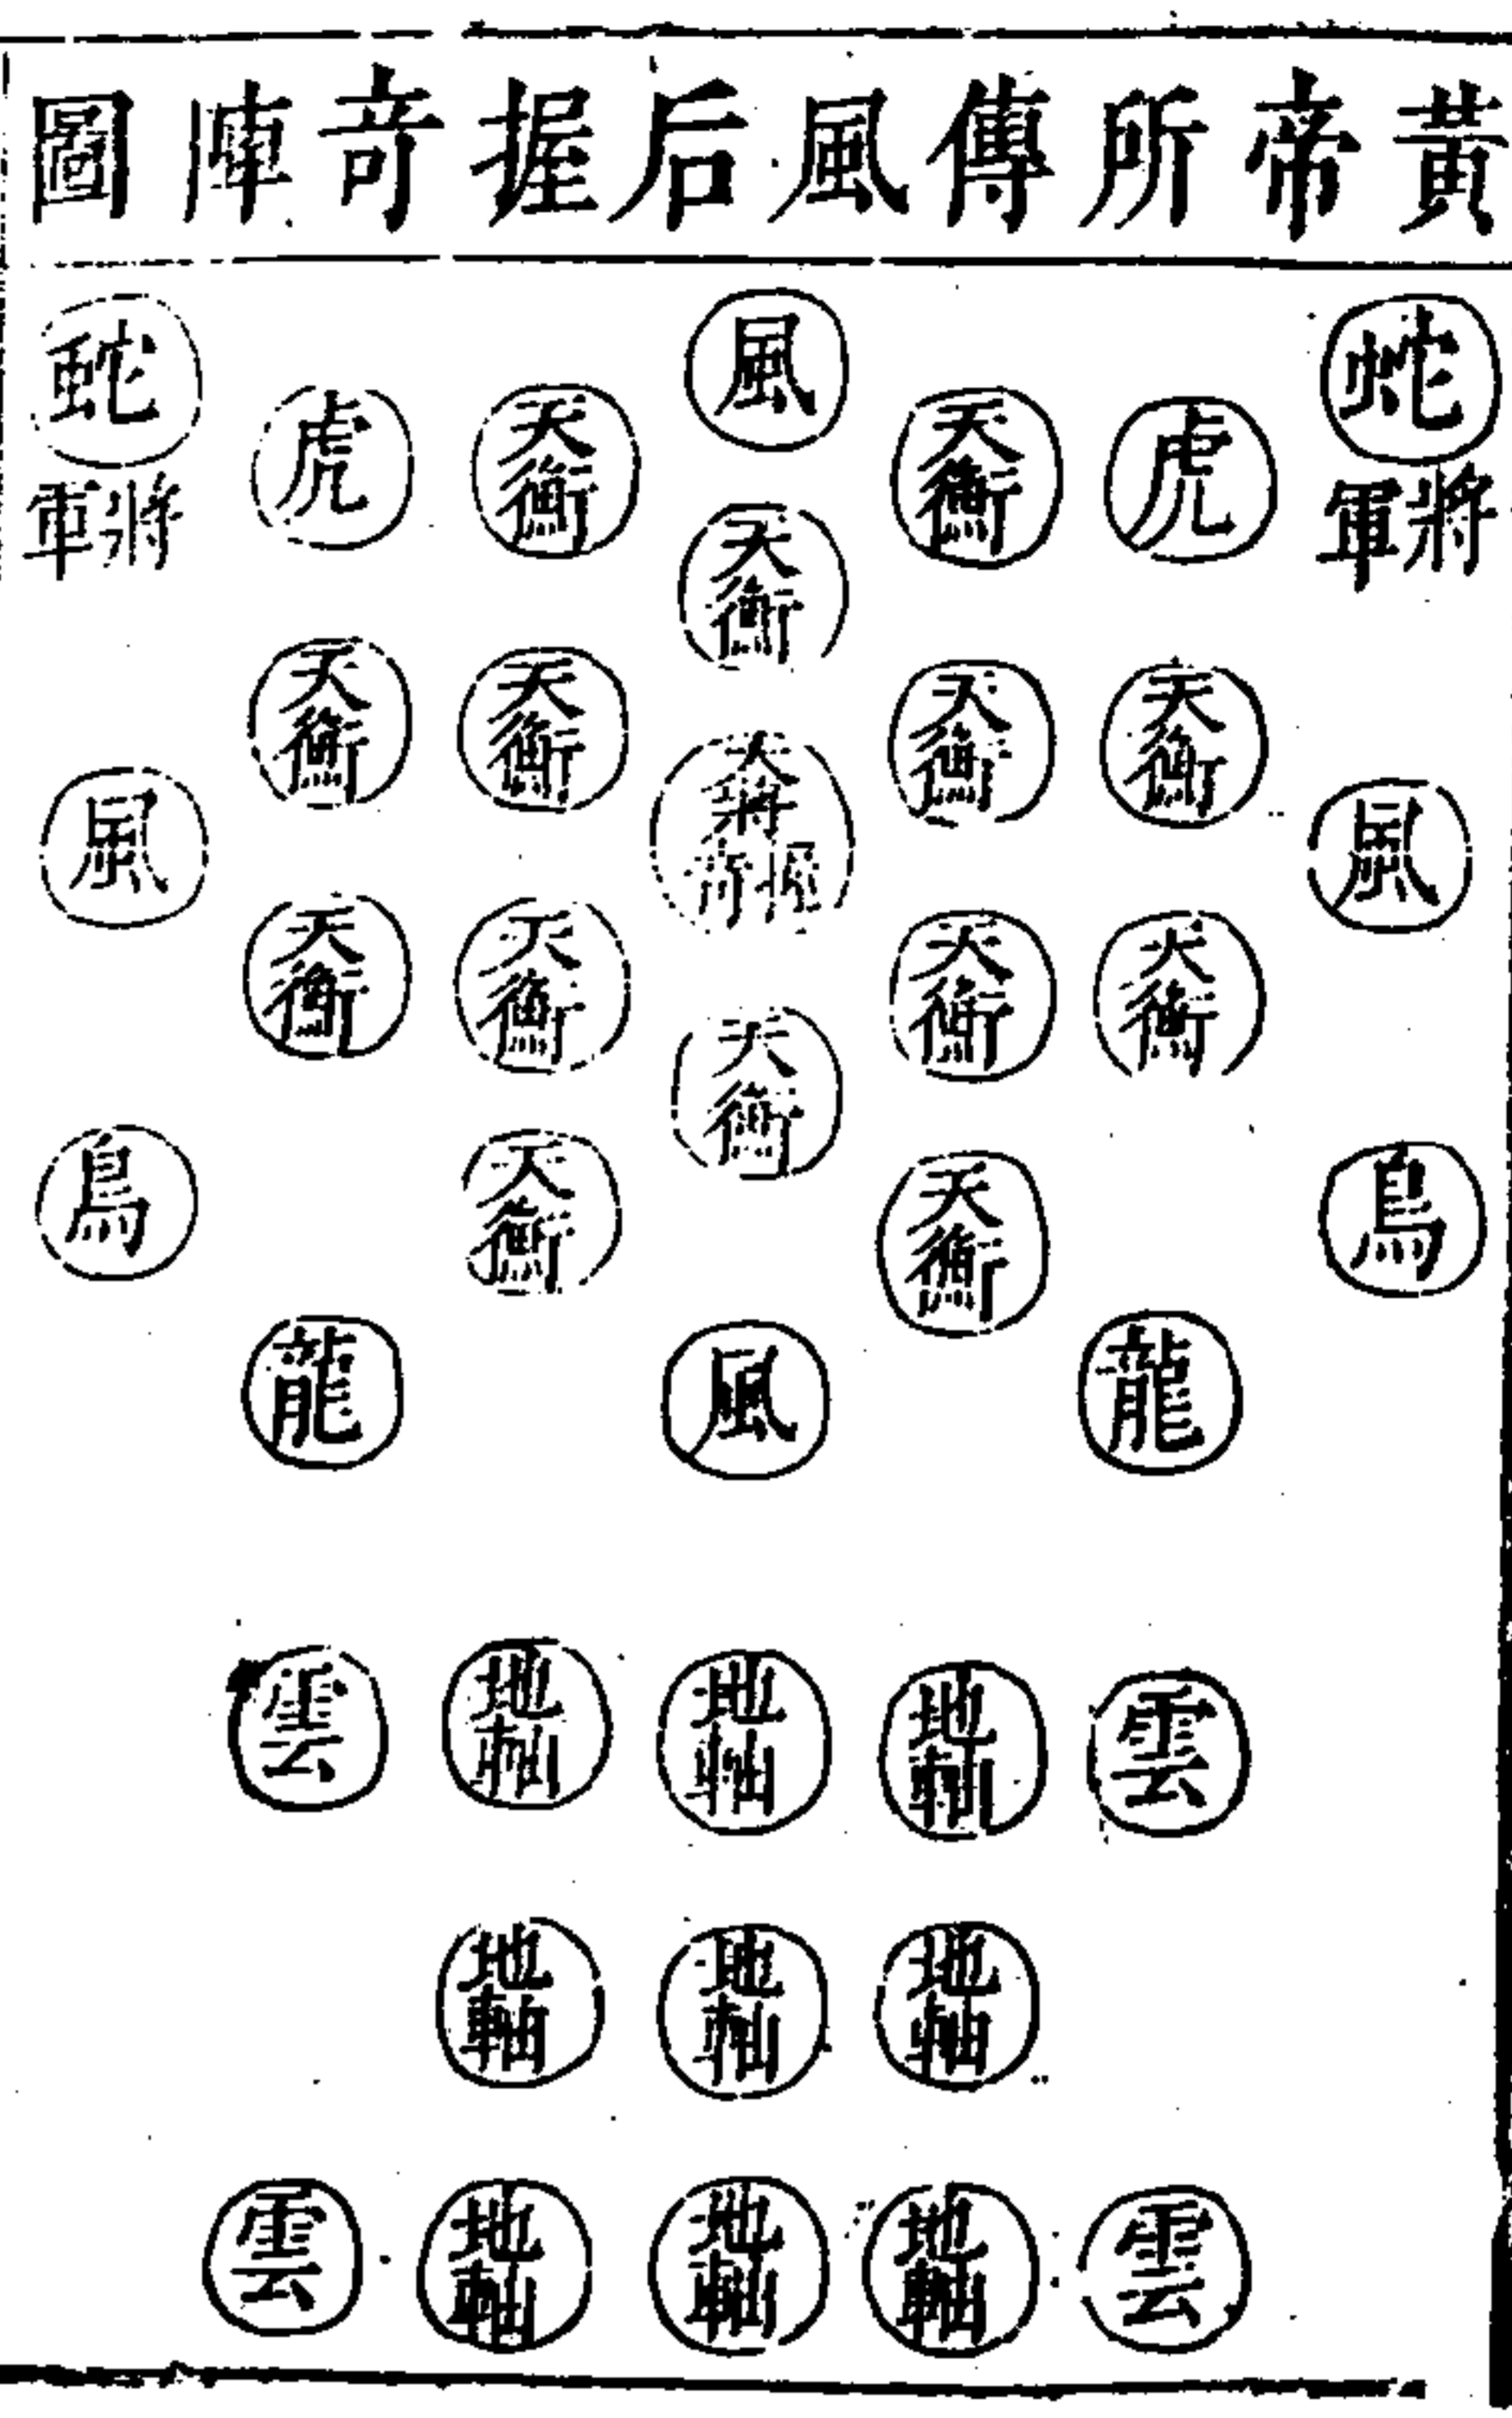 黃帝所傳風后握竒陣圖
蛇
將軍
風
鳥
虎
天衡
天衡
龍
雲
雲
天衡
天衡
天衡
天衡
地軸
地軸
地軸
風
天衡
大將握竒
天衡
風
地軸
地軸
地軸
天衡
天衡
天衡
天衡
地軸
地軸
地軸
虎
天衡
天衡
龍
雲
雲
蛇
將軍
風
鳥